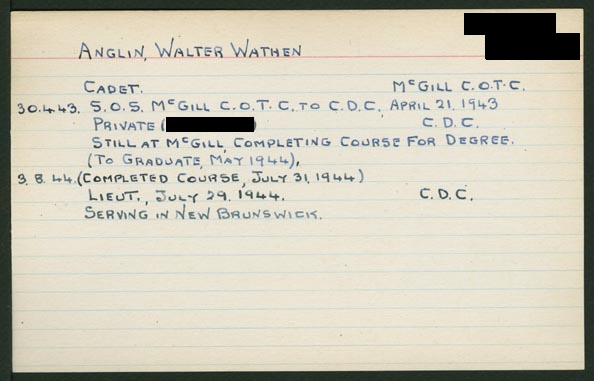 ANGLIN, WALTER WATHEN
CADET. McGILL C.O.T.C.
30.4.43. S.O.S. McGILL C.O.T.C. TO C.D.C. APRIL 21. 1943
PRIVATE ( ) C.D.C.
STILL AT McGILL, COMPLETING COURSE FOR DEGREE.
(TO GRADUATE, MAY 1944),
3.8.44. (COMPLETED COURSE, JULY 31, 1944)
LIEUT., JULY 29. 1944. C.D.C.
SERVING IN NEW BRUNSWICK.